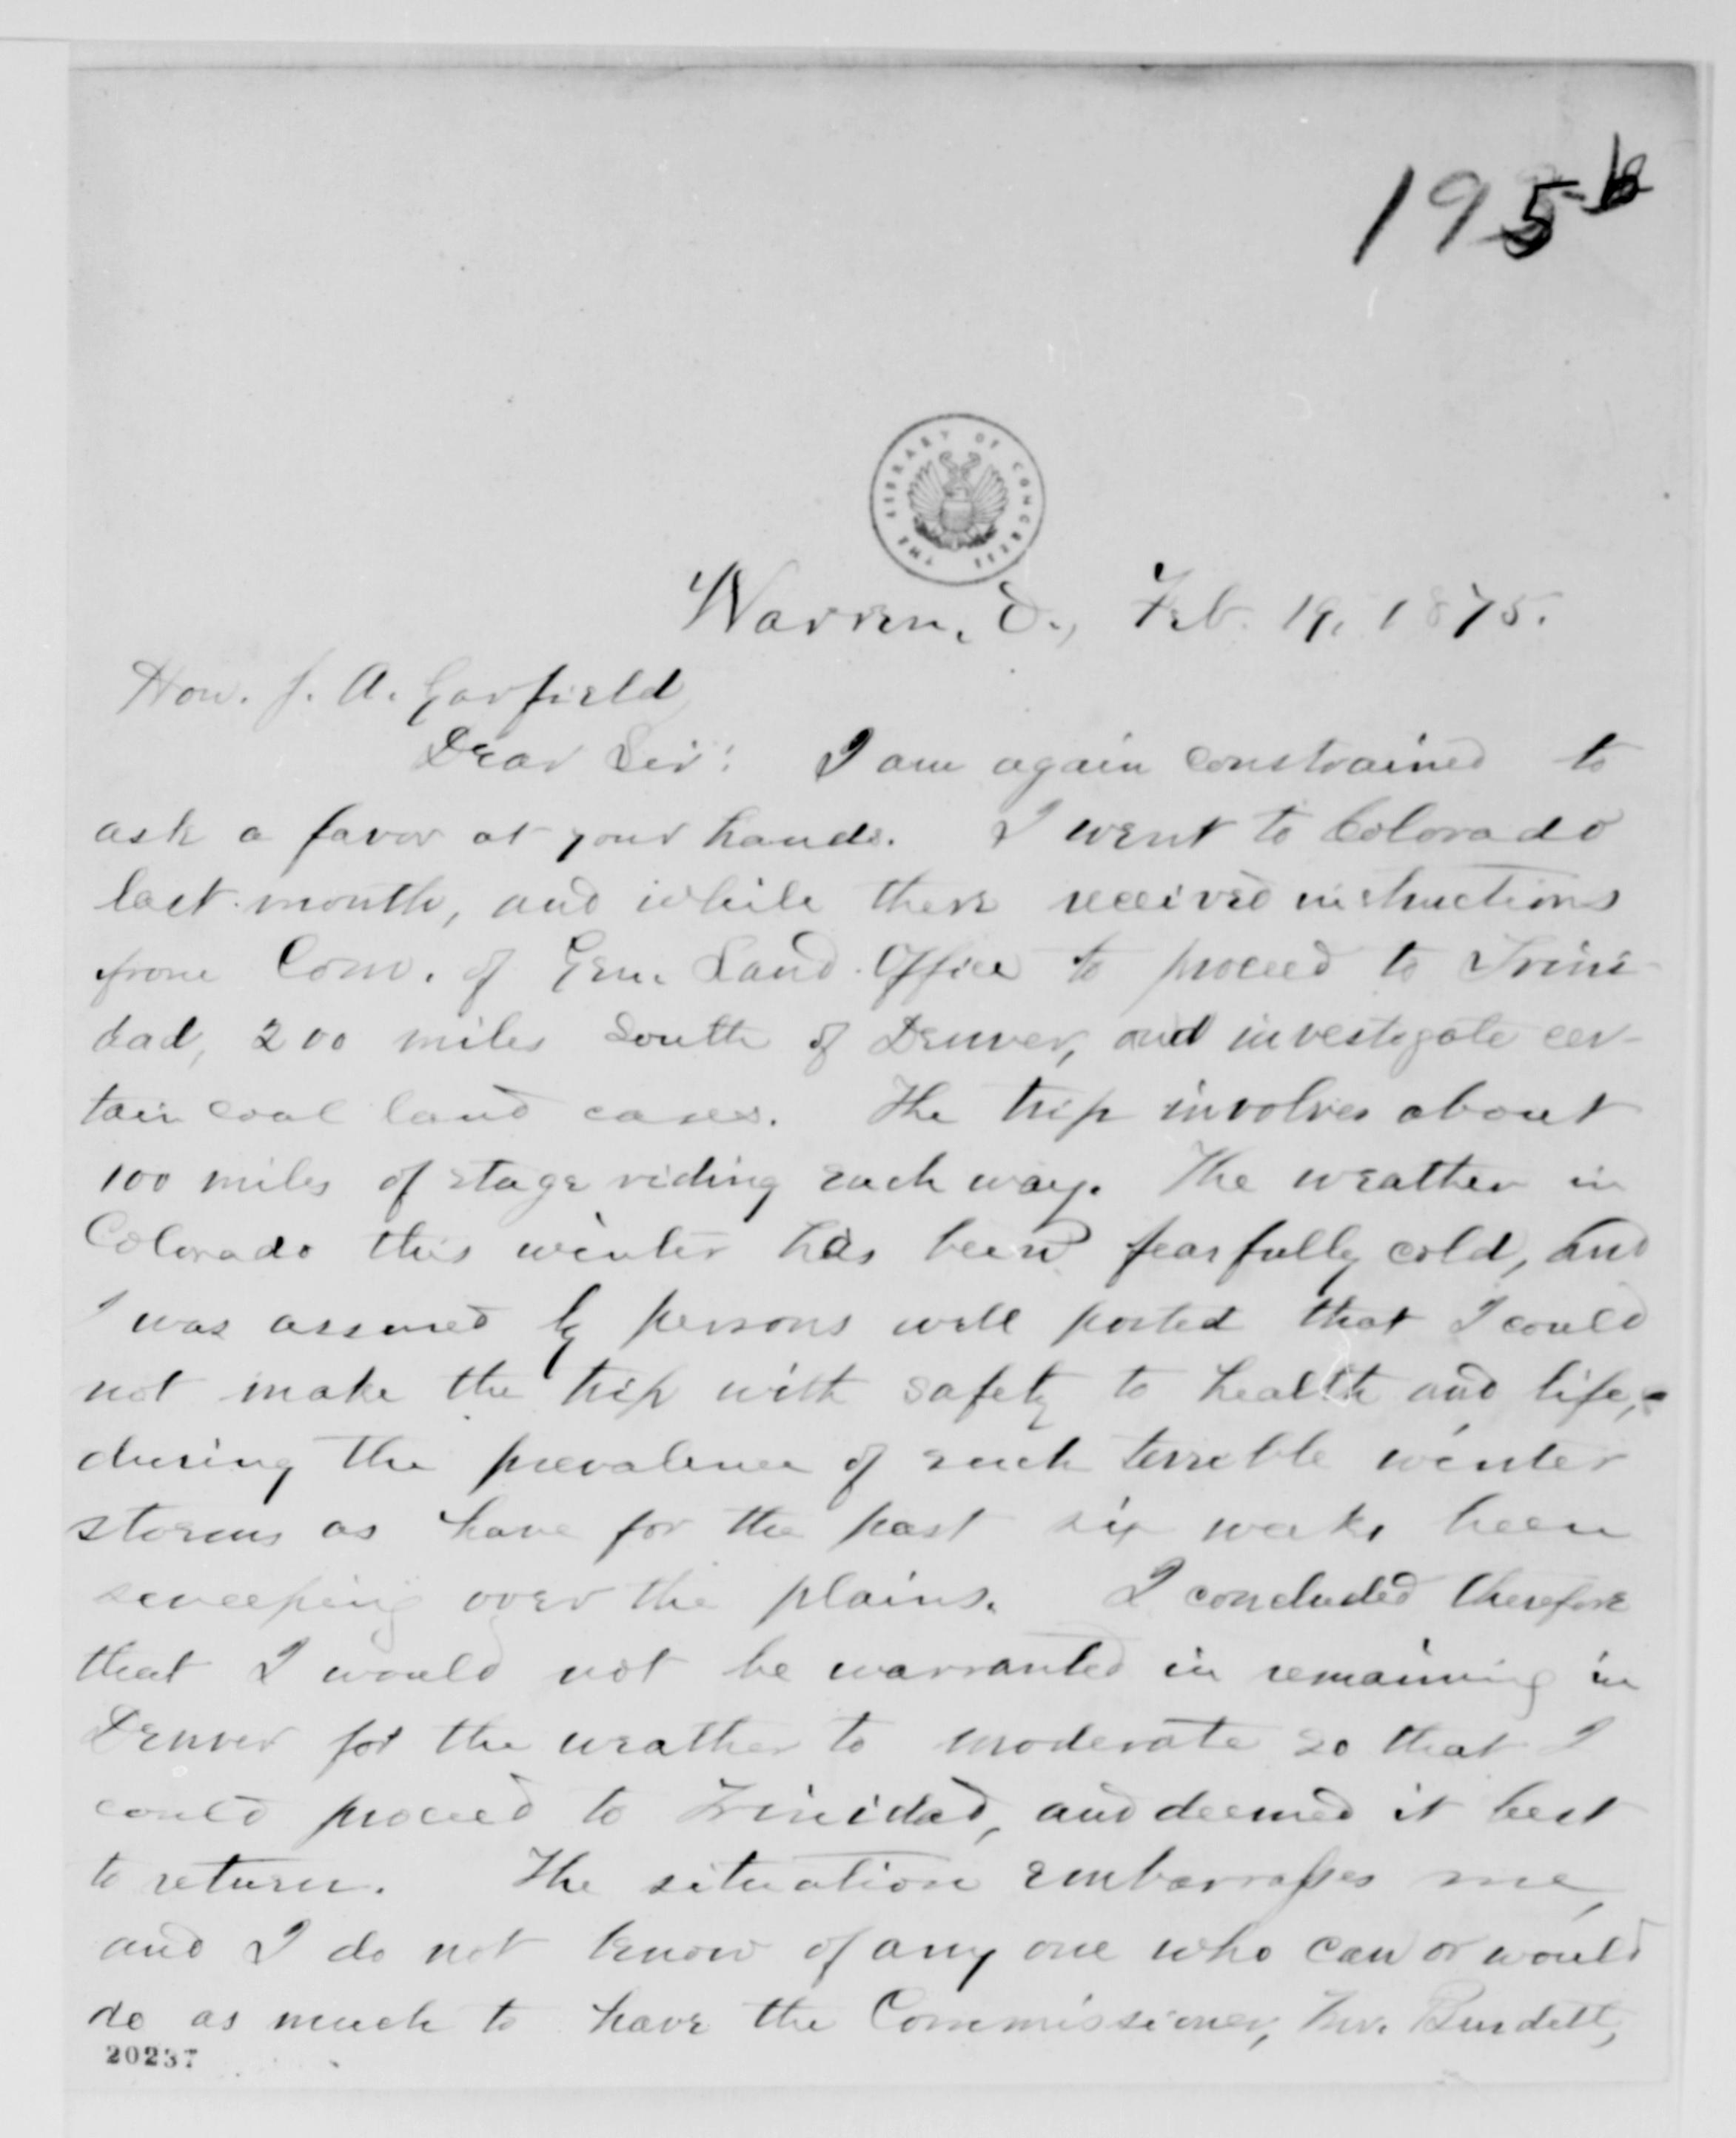 195-b
THE LIBRARY OF CONGRESS
Warren, O., Feb. 19, 1875.
Hon. J. A. Garfield
Dear Sir: I am again constrained to
ask a favor at your hands. I went to Colorado
last month, and while there received instructions
from Com. of Gen. Land Office to proceed to Trini-
dad, 200 miles South of Denver, and investigate cer-
tain coal land cases. The trip involves about
100 miles of stage riding each way. The weather in
Colorado this winter has been fearfully cold, and
I was assured by persons well posted that I could
not make the trip with safety to health and life,
during the prevalence of such terrible winter
storms as have for the past six weeks been
sweeping over the plains. I concluded therefore
that I would not be warranted in remaining in
Denver for the weather to moderate so that I
could proceed to Trinidad, and deemed it best
to return. The situation embarrasses me,
and I do not know of any one who can or would
do as much to have the Commissioner, Mr. Burdett,
20237